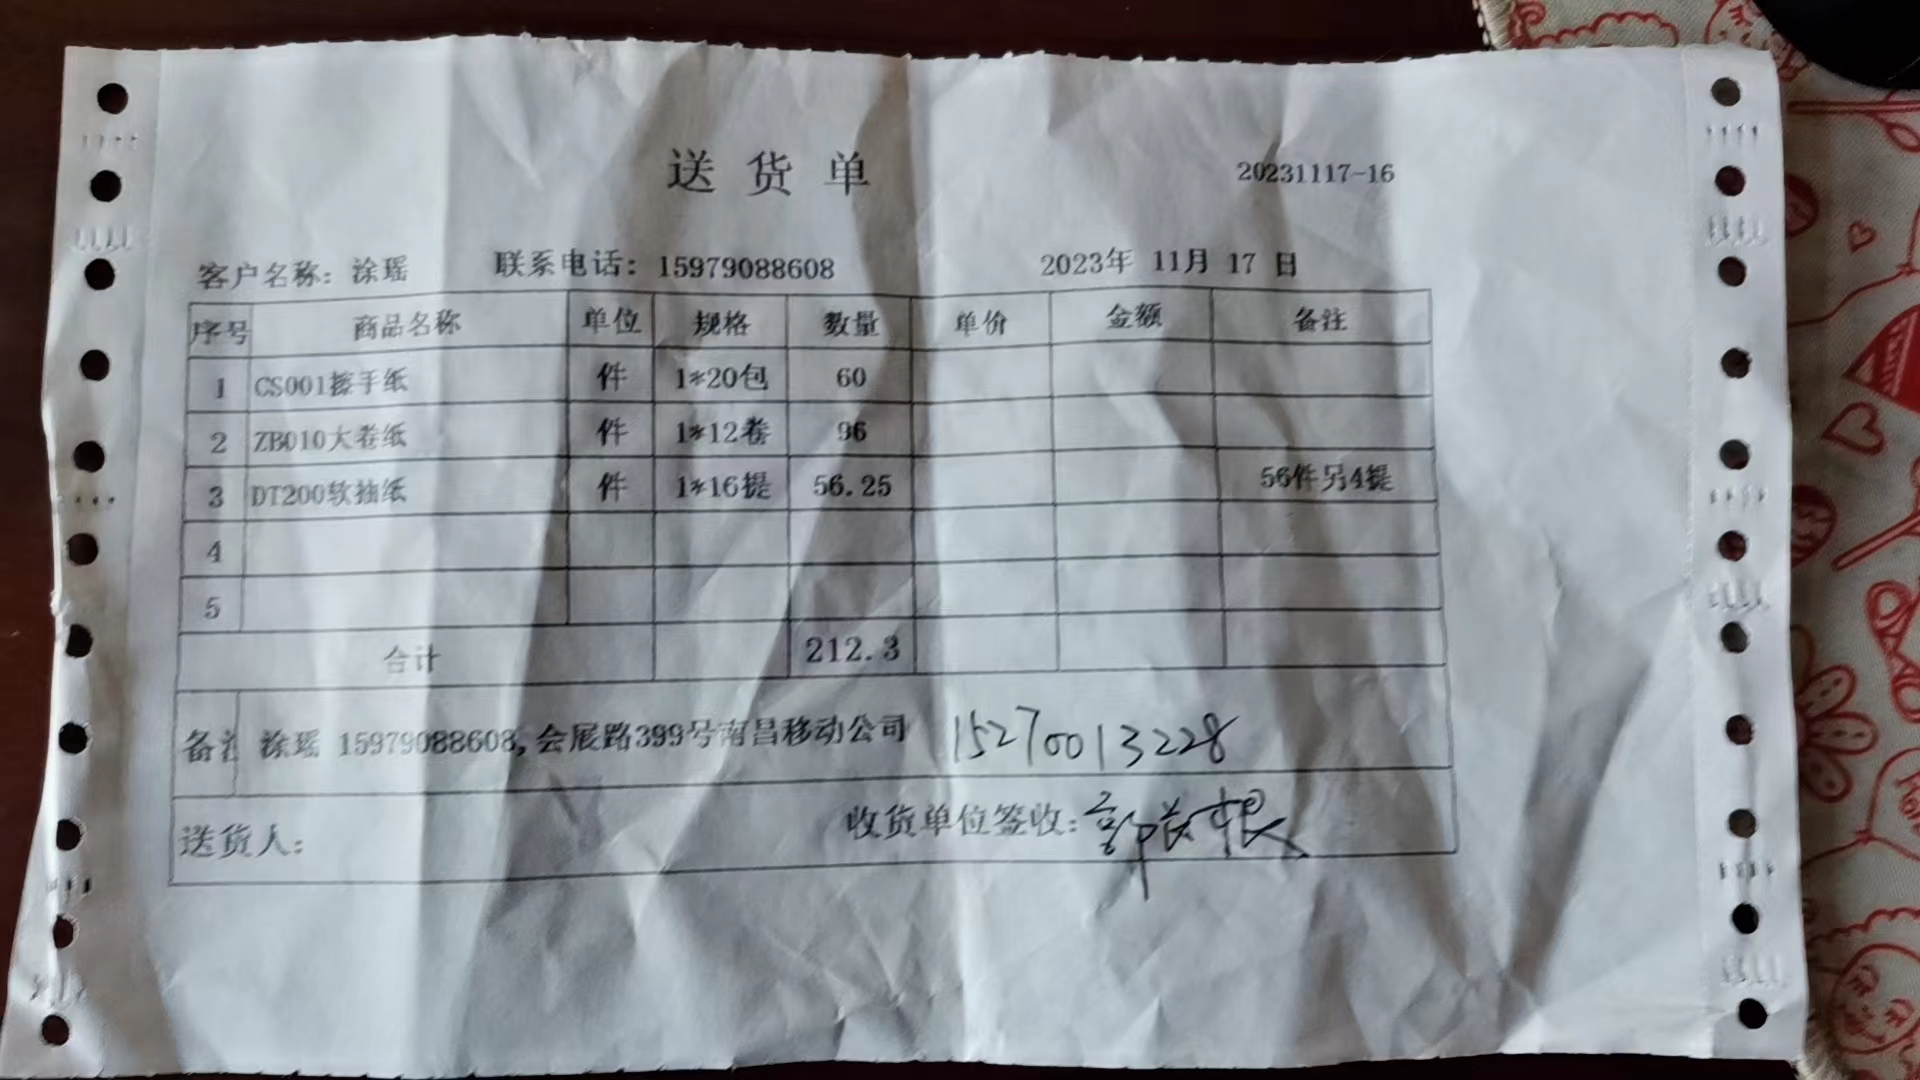 送货单
20231117-16
客户名称：涂瑶 联系电话：15979088608 2023年 11月 17 日
序号 商品名称 单位 规格 数量 单价 金额 备注
1 CS001擦手纸 件 1*20包 60
2 ZB010大卷纸 件 1*12卷 96
3 DT200软抽纸 件 1*16提 56.25 56件另4提
4
5
合计 212.3
备注 涂瑶 15979088608,会展路399号南昌移动公司 15270013228
送货人： 收货单位签收：